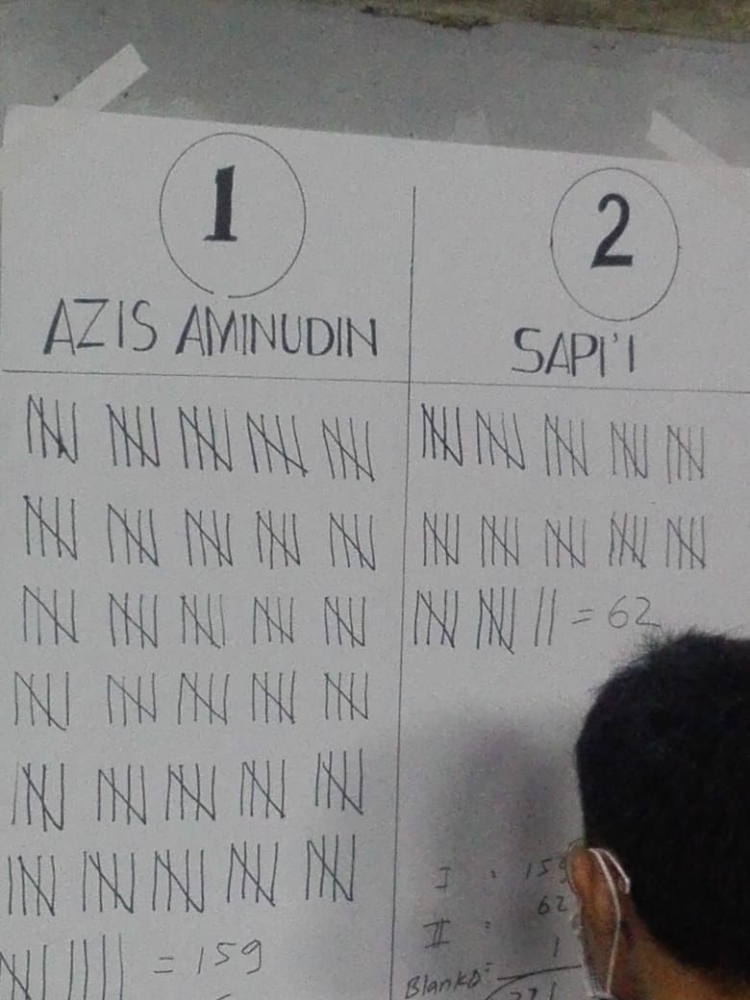 1
AZIS AMINUDIN
= 159
2
SAPI'I
= 62
I : 159
II : 62
Blanko = 1